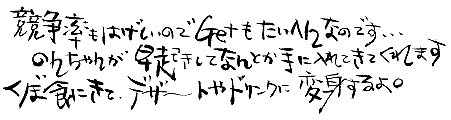 競争率もはげしいのでGetもたいへんなのです…
のんちゃんが早起きしてなんとか手に入れてきてくれます
くぼ食にきて、デザートやドリンクに変身するよ。